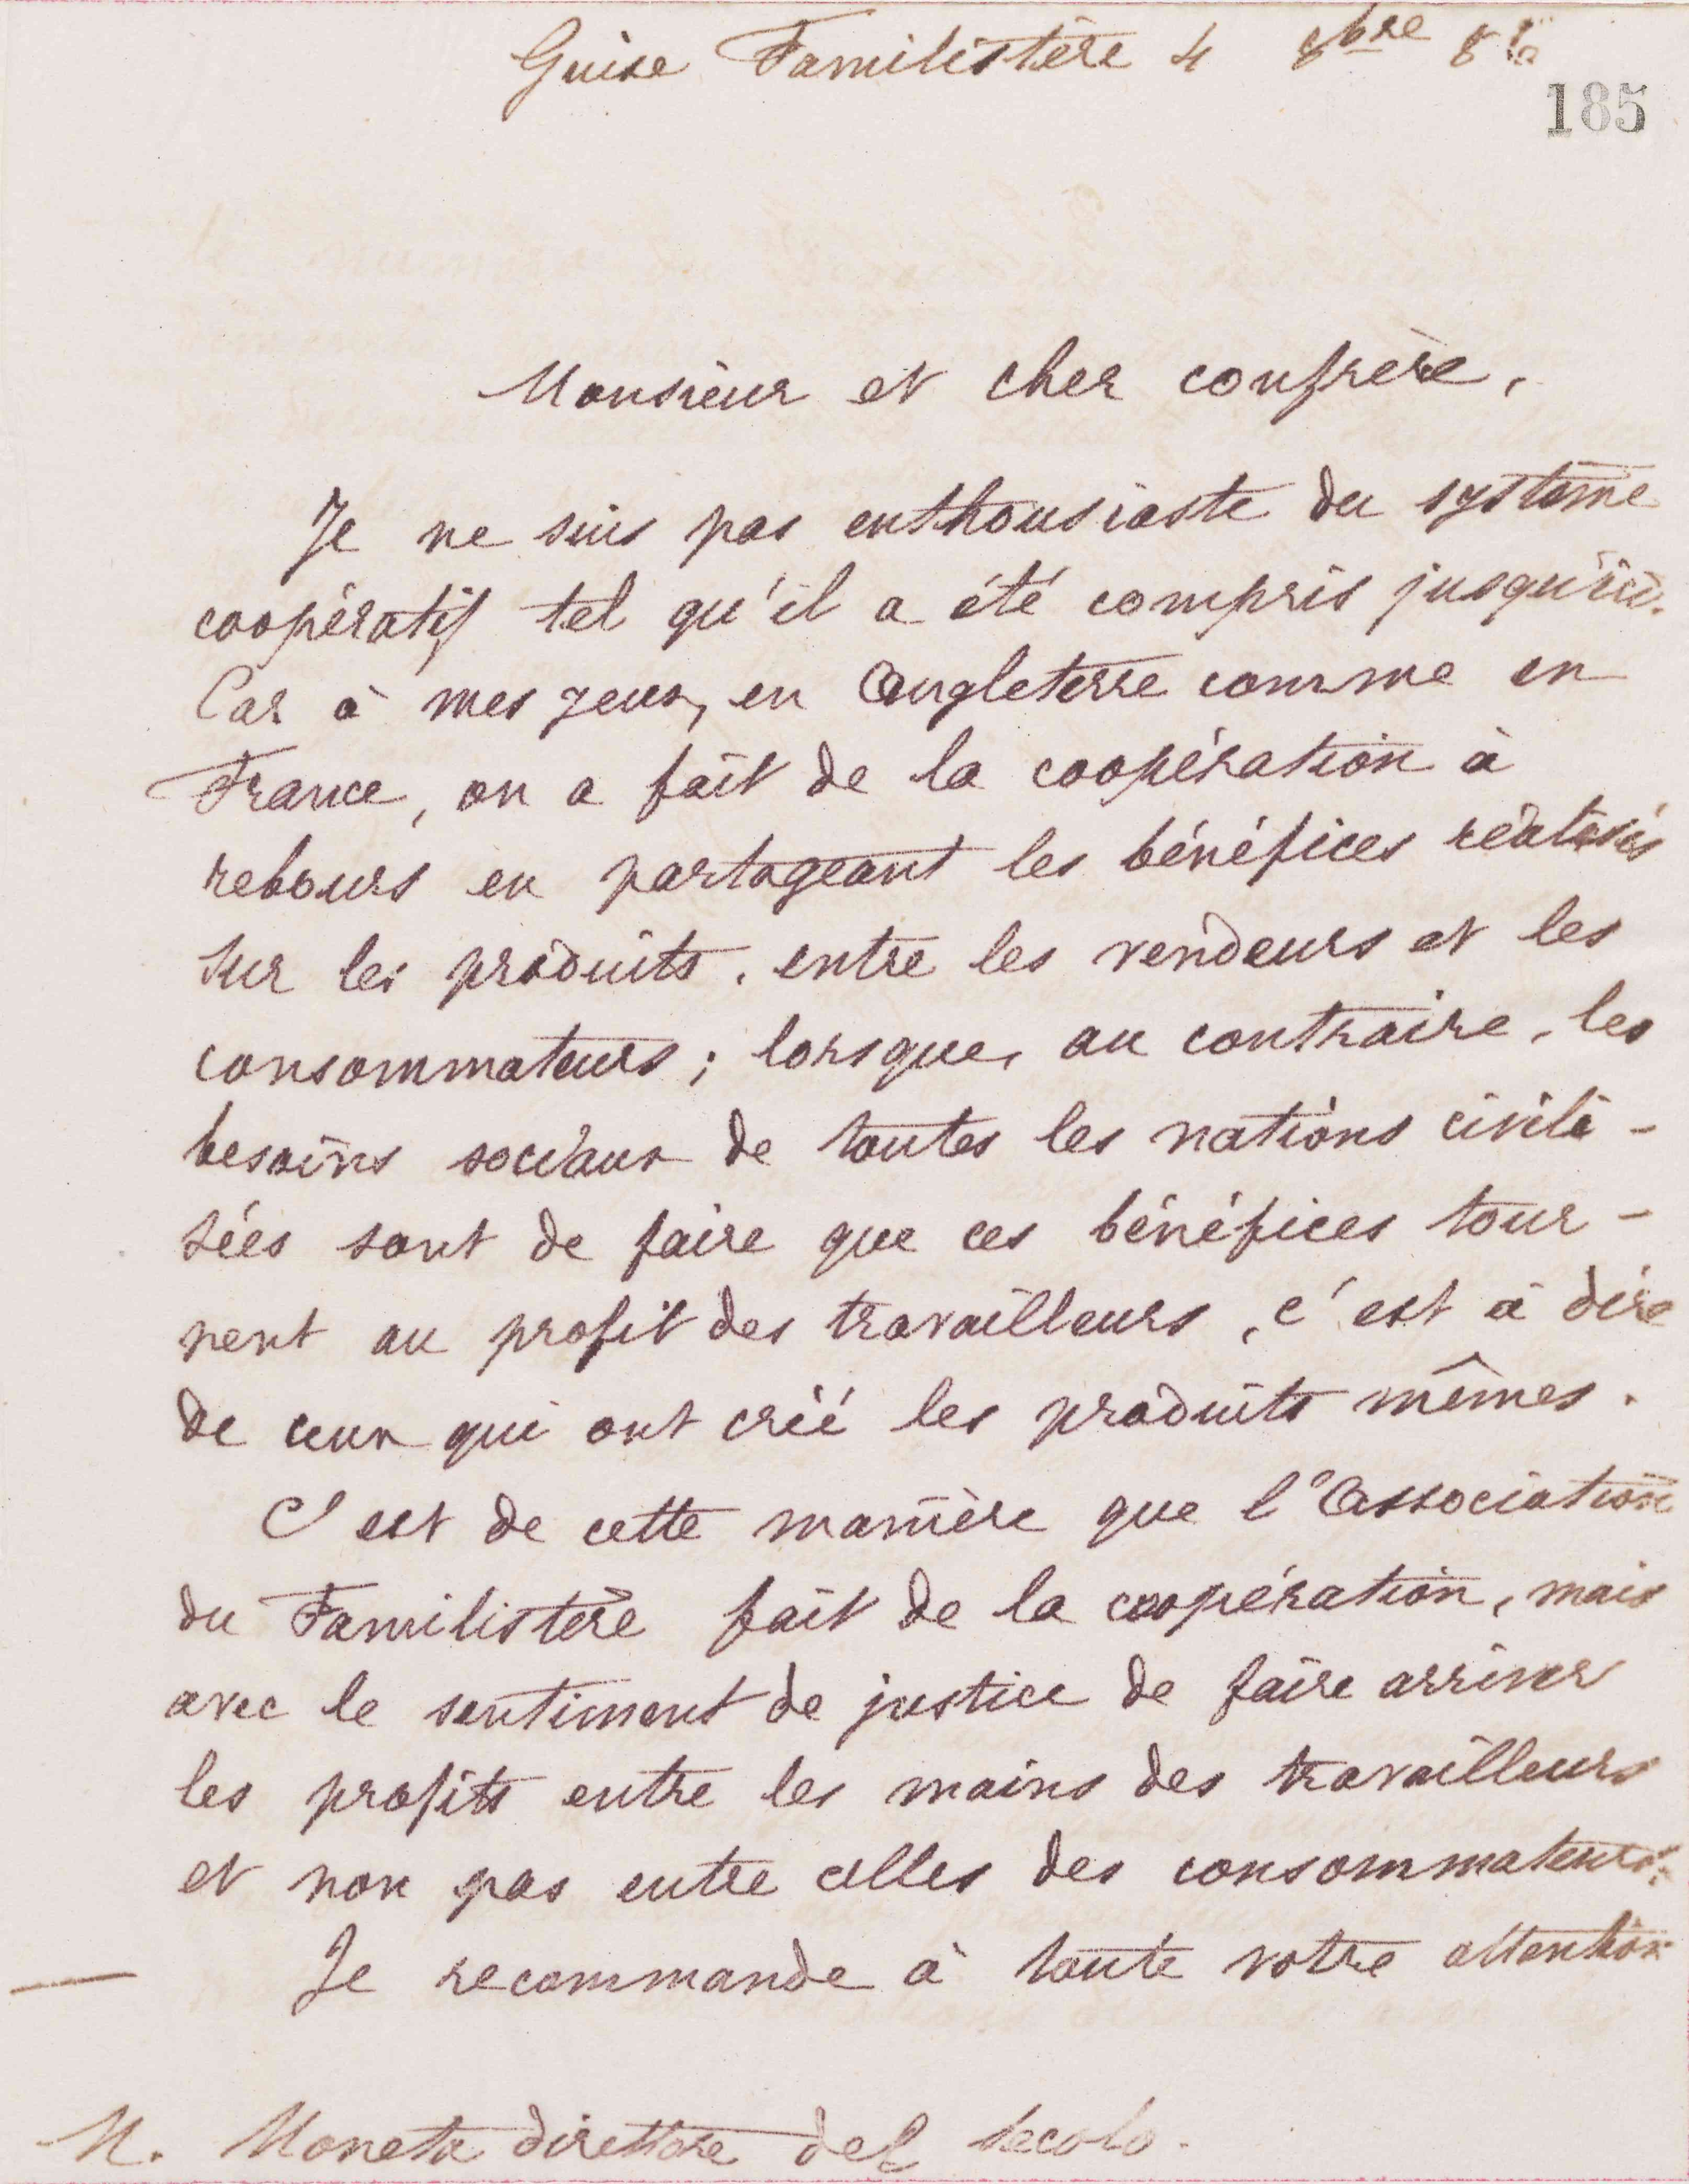 Guise Familistère 4 8bre
185
Monsieur et cher confrère,
Je ne suis pas enthousiaste du système
coopératif tel qu'il a été compris jusqu'ici.
Car à mes yeux, en Angleterre comme en
France, on a fait de la coopération à
rebours en partageant les bénéfices réalisés
sur les produits, entre les vendeurs et les
consommateurs ; lorsque, au contraire, les
besoins sociaux de toutes les nations civili-
sées sont de faire que ces bénéfices tour-
nent au profit des travailleurs, c'est à dire
de ceux qui ont créé les produits mêmes.
C'est de cette manière que l'Association
du Familistère fait de la coopération, mais
avec le sentiment de justice de faire arriver
les profits entre les mains des travailleurs
et non pas entre celles des consommateurs.
Je recommande à toute votre attention
M. Moneta direttore del Secolo.